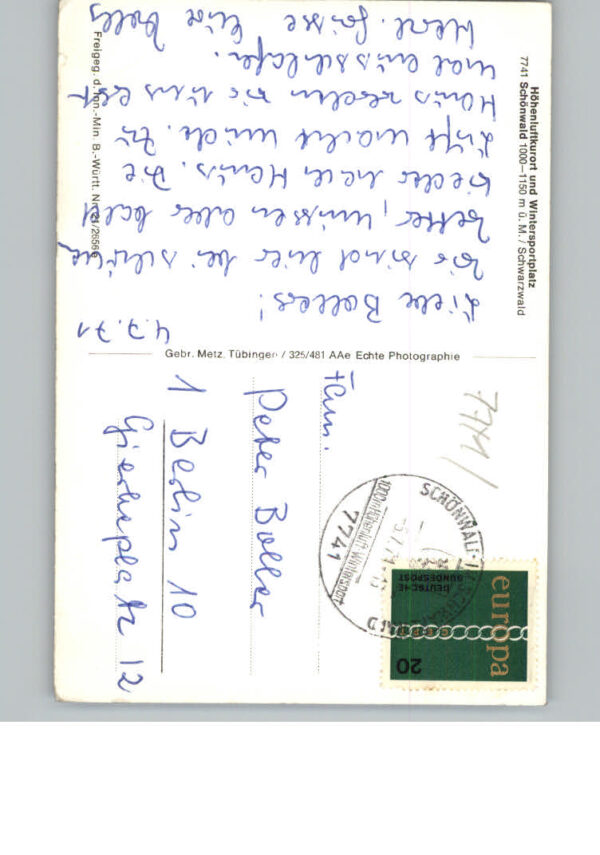 Höhenluftkurort und Wintersportplatz
7741 Schönwald 1000–1150 m ü. M. / Schwarzwald
4.7.71
Liebe Bollers!
Wir sind hier bei schönem
Wetter, müssen aber bald
wieder nach Haus. Die
Luft macht müde. Zu
Haus werden wir uns erst
mal ausschlafen.
Herzl. Grüsse Eure
Freigeg. d. Inn.-Min. B.-Württ. Nr.
Gebr. Metz, Tübingen / 325/481 AAe Echte Photographie
Fam.
Peter Boller
1 Berlin 10
Gierkeplatz 12
7741
SCHÖNWALD
1000m Höhenluft Wintersport
7741
europa
DEUTSCHE
BUNDESPOST
20